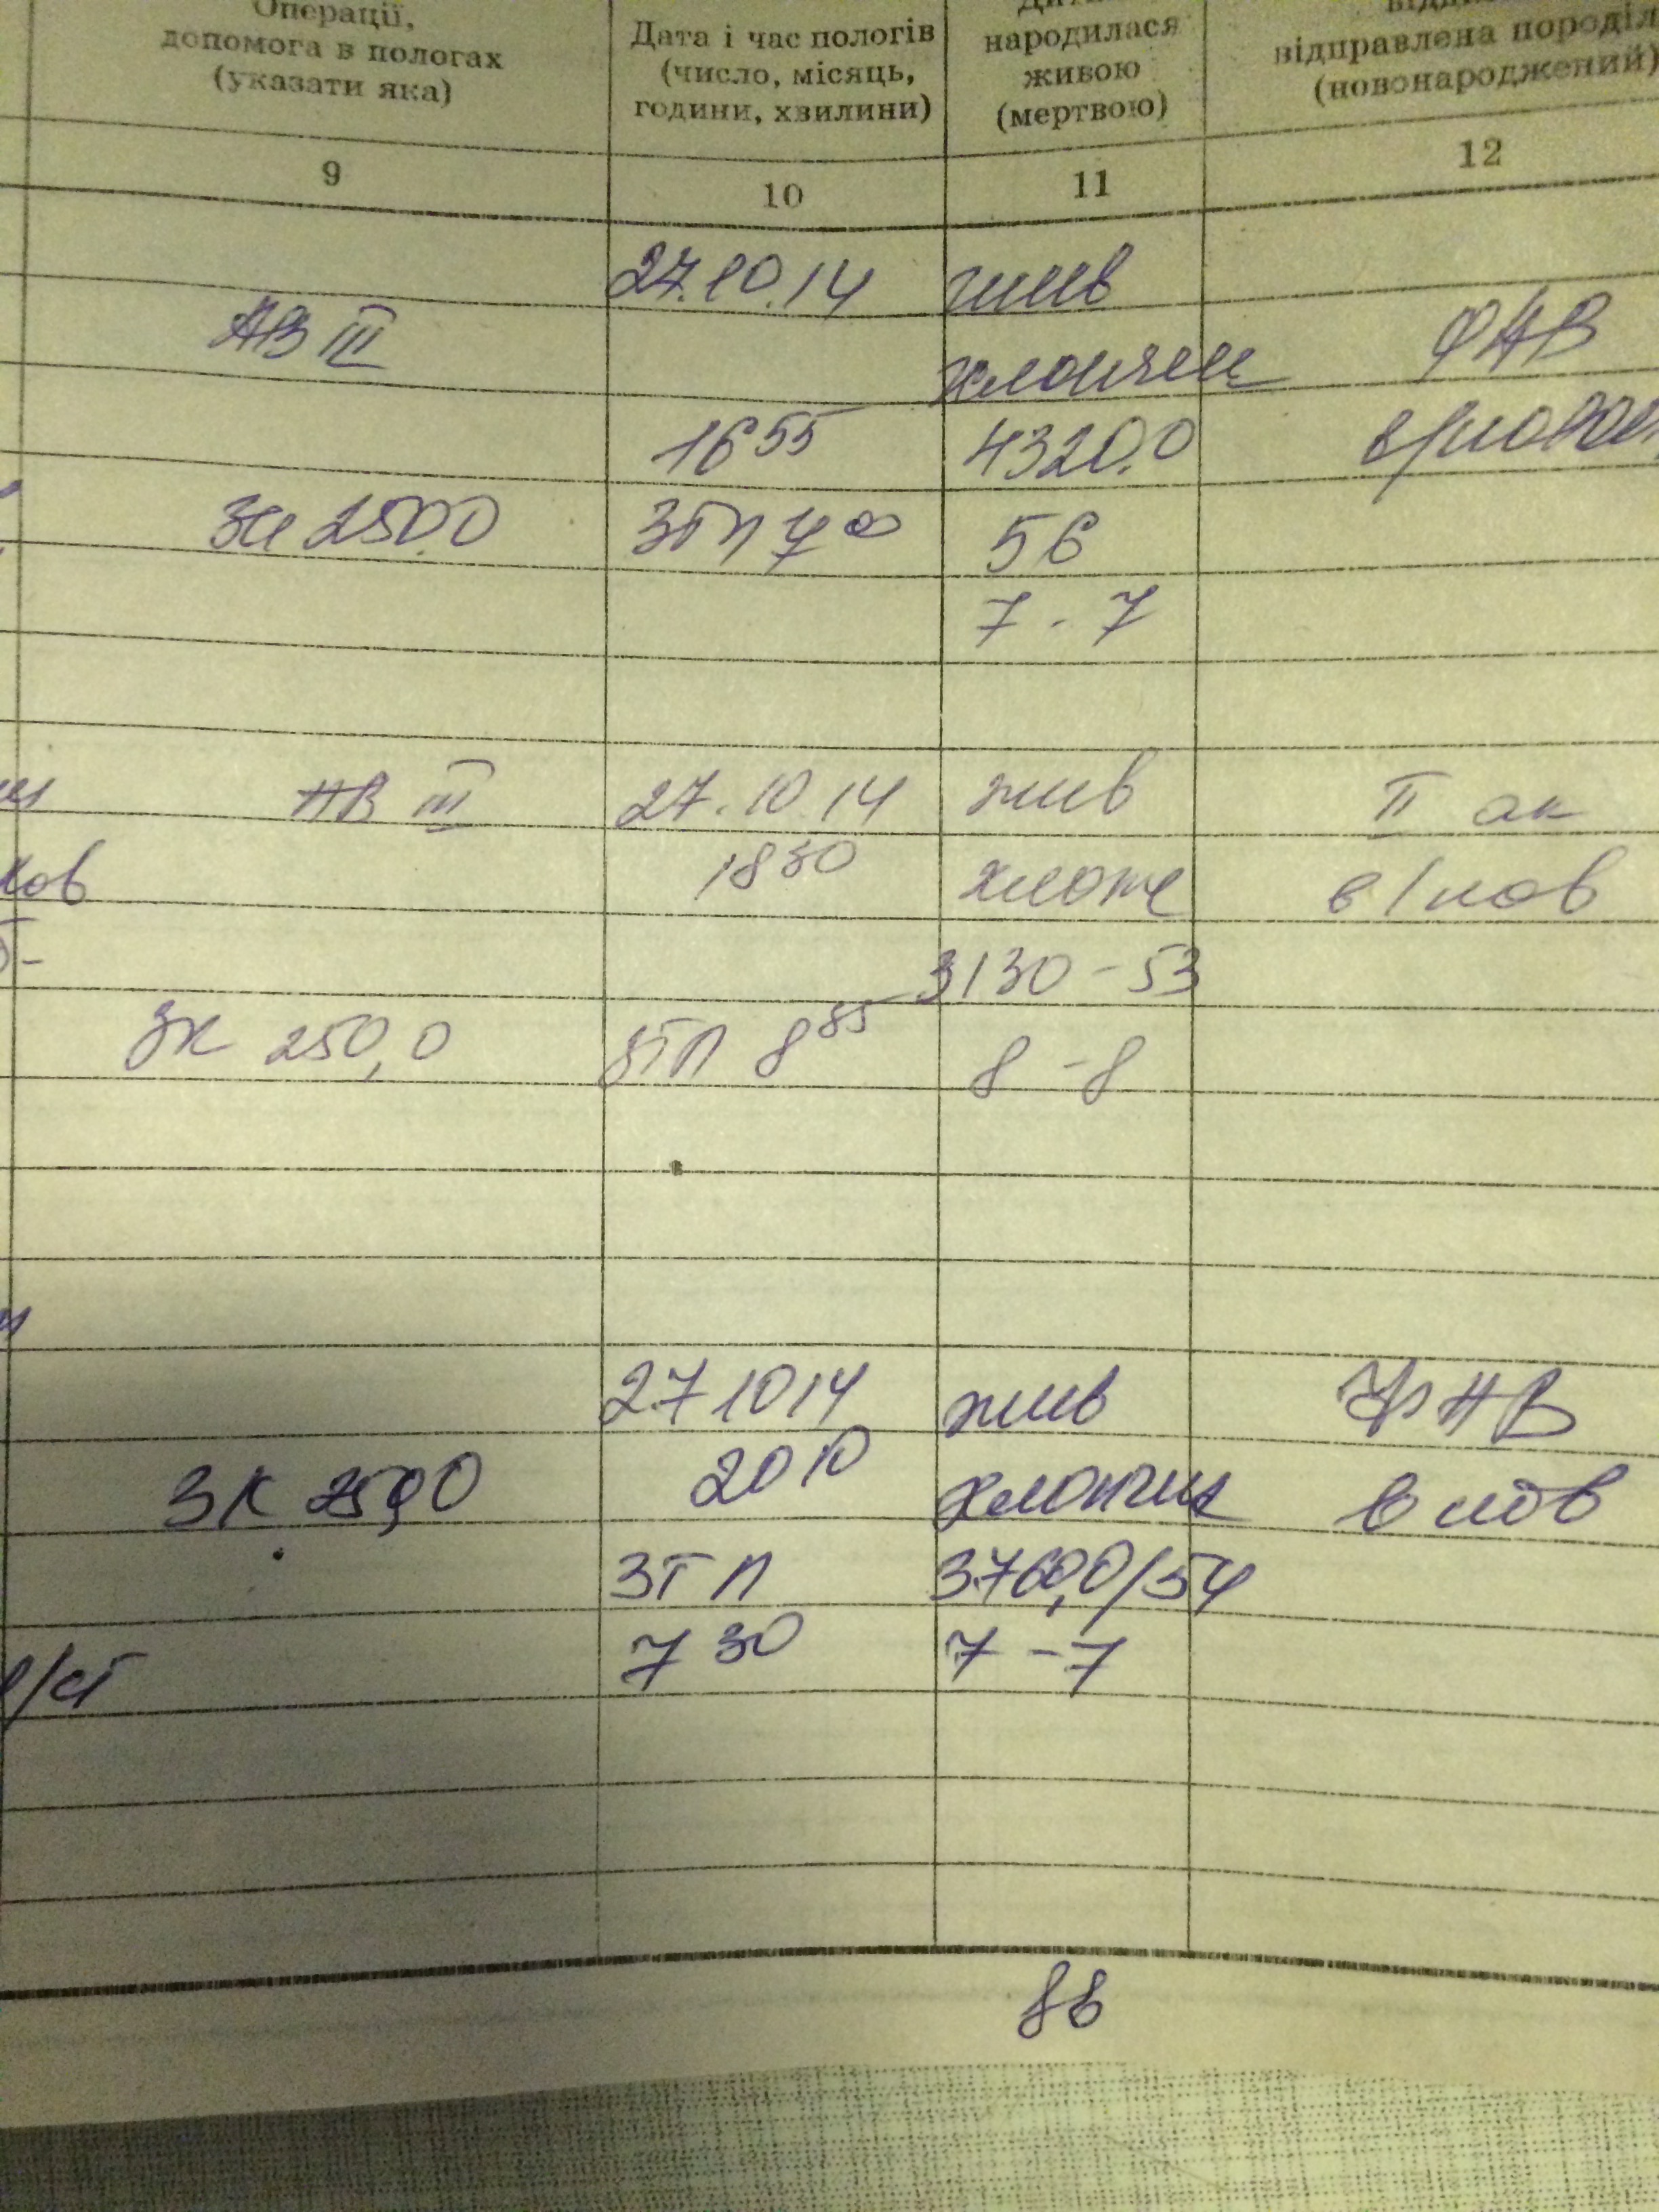 Операції,
допомога в пологах
(указати яка)
Дата і час пологів
(число, місяць,
години, хвилини)
народилася
живою
(мертвою)
відправлена породіл
(новонароджений)
9 10 11 12
27.10.14 жив
АВ III хлопчик ФАВ
16 55 4320,0
Зк 250,0 ЗТП 7 00 56
7 - 7
АВ III 27.10.14 жив II ак
ков 18 30 хлопч в/пов
3130 - 53
Зк 250,0 ЗТП 8 35 8 - 8
27 10 14 жив
Зк 250,0 20 10 хлопчик в пов
ЗТП 3760,0/54
7 30 7 - 7
/ст
88